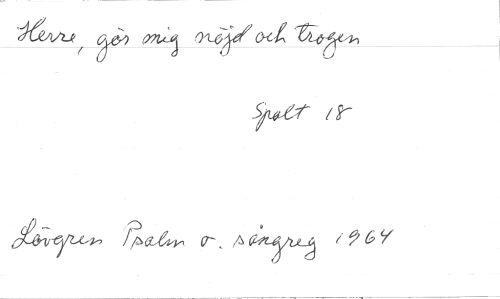 Herre, gör mig nöjd och trogen
Spalt 18
Lövgren Psalm o. sångreg 1964